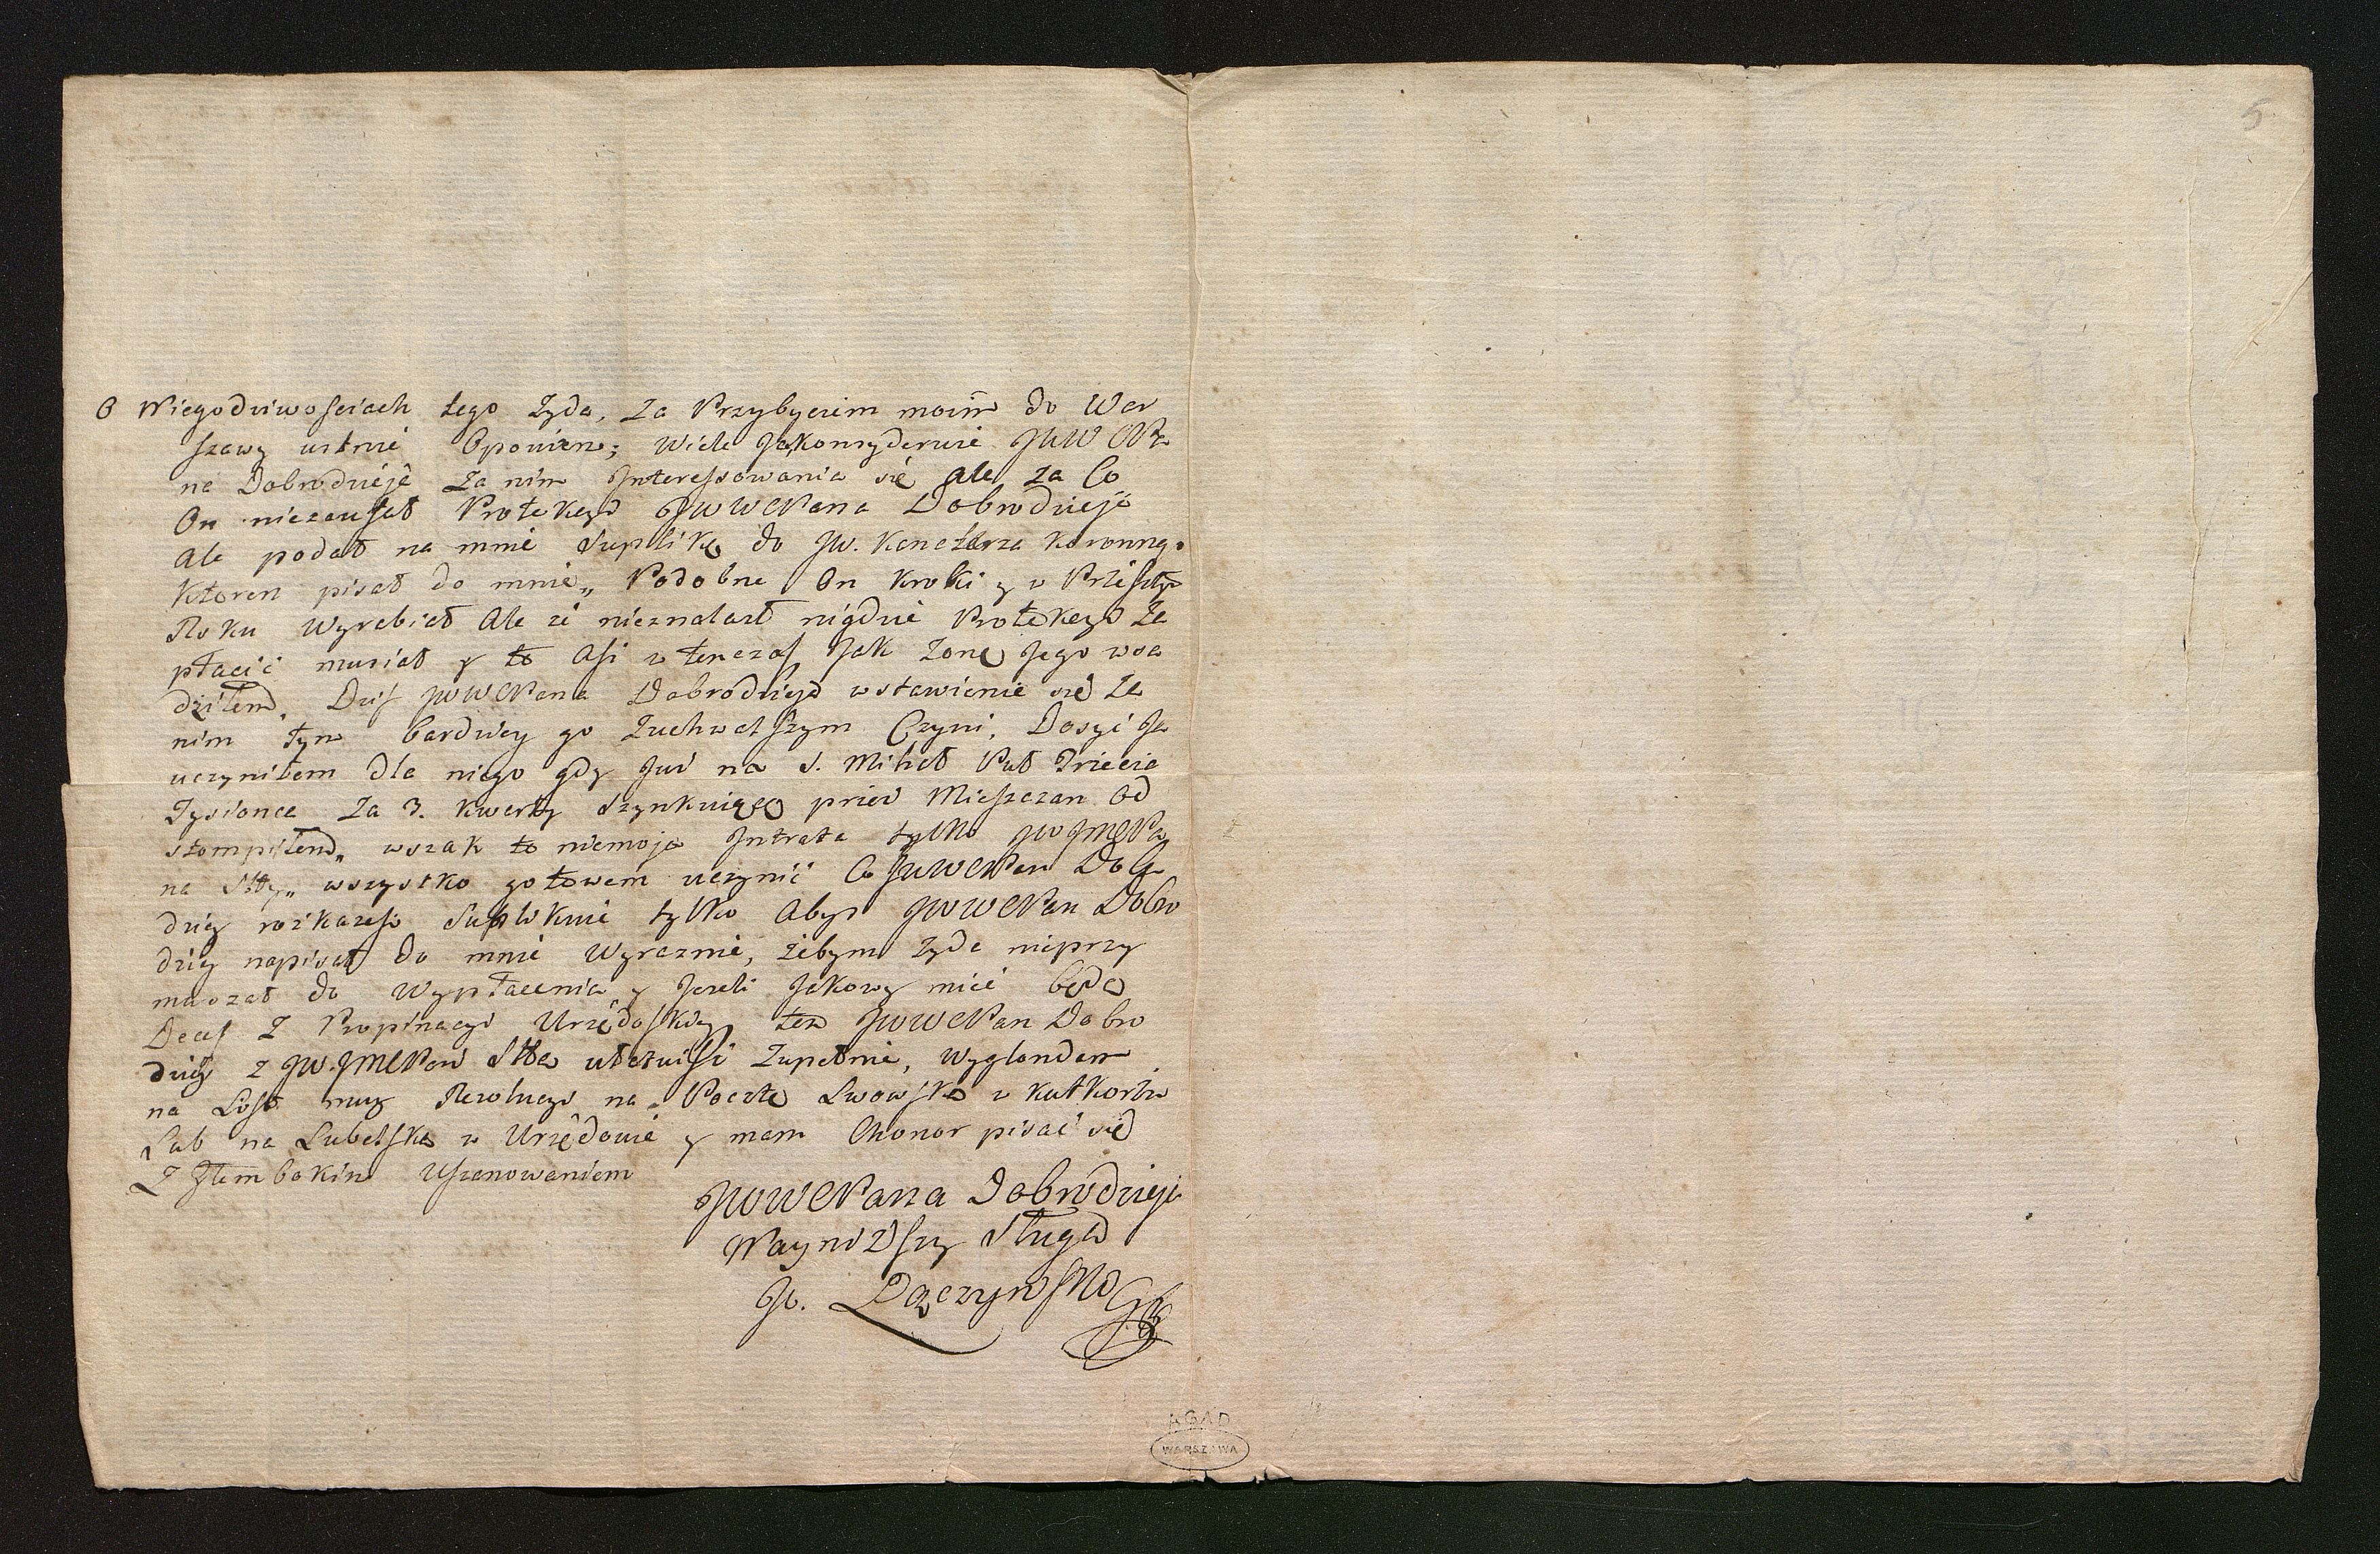 5
O Niegodziwościach tego Żyda, za Przybyciem moim do War
szawy ustnie Opowiem; Wiele Ja konsyderuie JWWCPa
na Dobrodzieja za nim Interessowania się Ale za Co
On niezausał Protekcyi JWWCPana Dobrodzieja
Ale podał na mnie Suplikę do JW. Kanclerza Koronnego
Ktoren pisał do mnie„ Podobne On Kroki y w Przeszłym
Roku Wyrabiał Ale że nieznalazł nigdzie Protekcyi Za
płacić musiał y to Asz wtenczas Jak Zonę Jego wsa
dziłem, Dziś JWWCPana Dobrodzieja wstawienie się Za
nim tym bardziey go Zuchwalszym Czyni, Dosyć Ja
uczyniłem dla niego gdy Już na S. Michał Puł Trzecia
Tysionca Za 3. Kwarty przez Mieszczan Od
stompiłem„ wszak to niemoja Intrata tylko JWJMCPa
na Stty„ wszystko gotowem uczynić Co JWWCPan Dobro
dziey rozkażesz Suplikuie tylko Abyś JWWCPan Dobro
dziey napisał do mnie Wyraznie, żebym Żyda nieprzy
muszał do Wypłacenia y Jezeli Jakowy mieć będę
Decess Z Propinacyi Urzędoskiey ten JWWCPan Dobro
dziey z JW.JMCPanem Sttą ułatwisz Zupełnie, Wyglondam
na List muy Rezolucyi na Pocztę Lwowską w Kutkorzu
Lub na Lubelską w Urzędowie y mam Chonor pisać się
Z Głembokim Uszanowaniem
JWWCPana Dobrodzieja
Naynizszy Sługa
Łączyński
AGAD
WARSZAWA